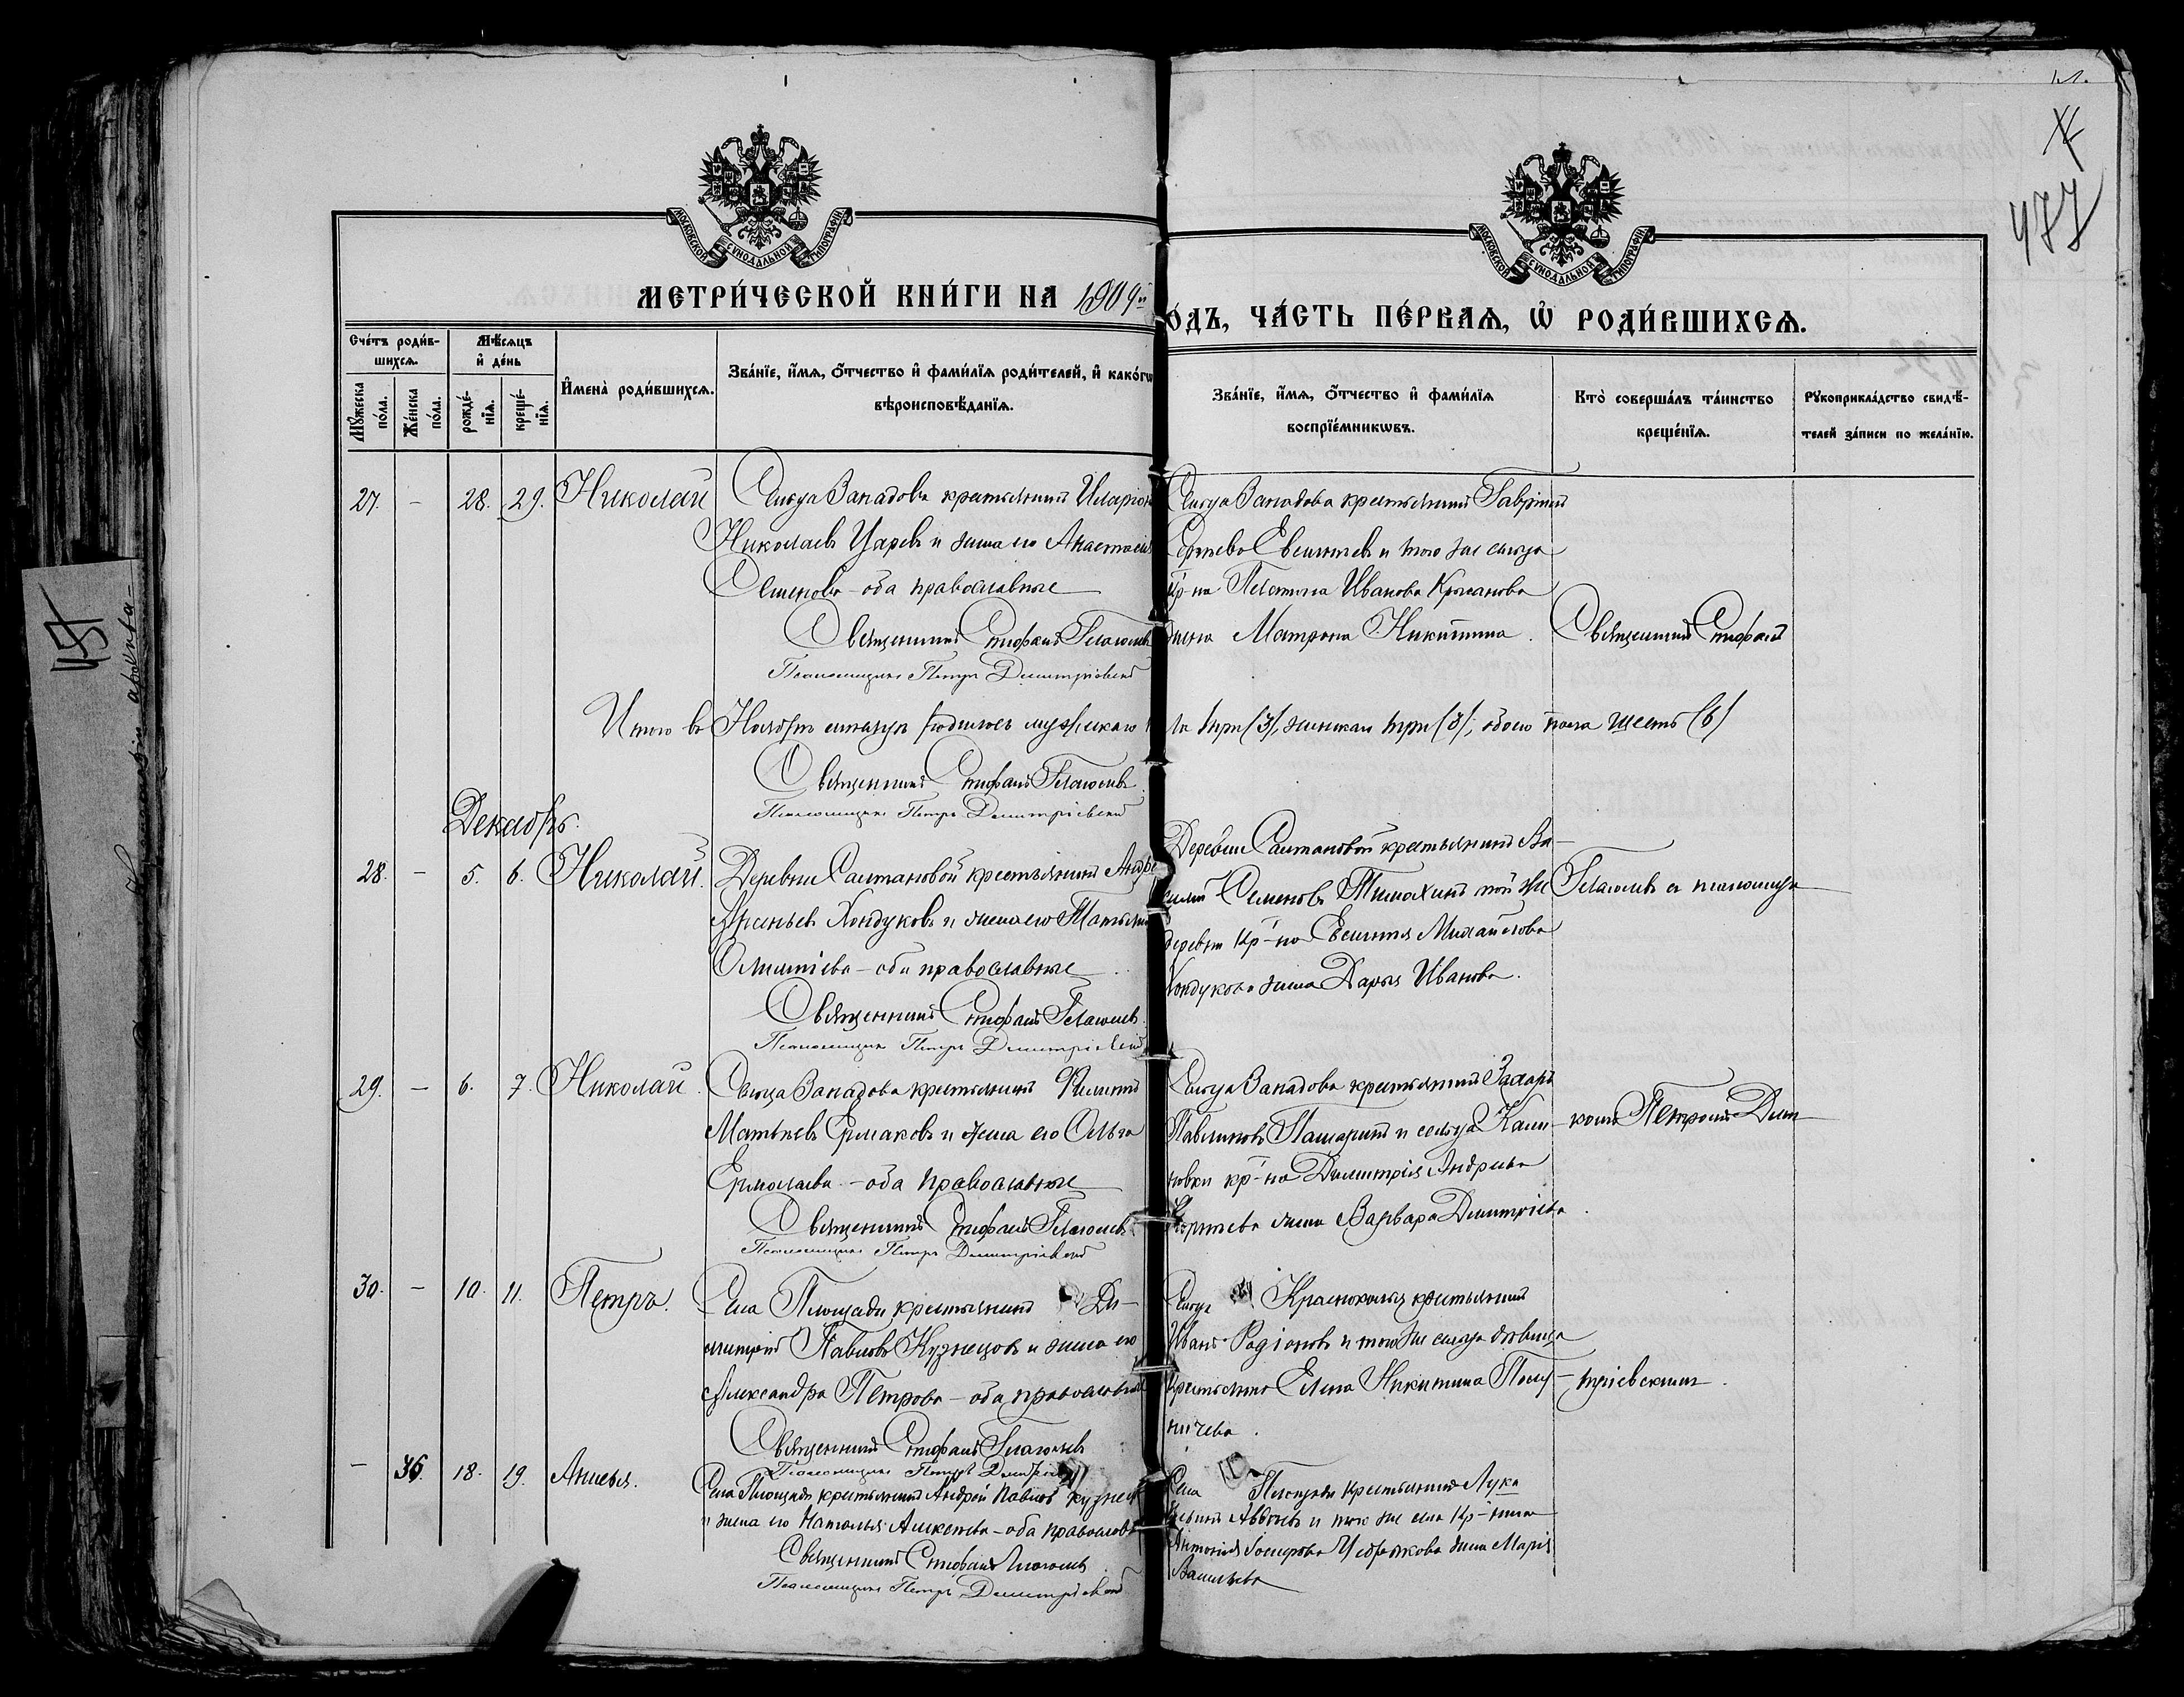 477
МОСКОВСКОЙ СѴНОДАЛЬНОЙ ТИПОГРАФІИ
МОСКОВСКОЙ СѴНОДАЛЬНОЙ ТИПОГРАФІИ
МЕТРИ́ЧЕСКОЙ КНИ́ГИ НА 1909й
О́ДЪ, ЧА́СТЬ ПЕ́РВАѦ, Ѡ҆ РОДИ́ВШИХСѦ.
Сче́тъ роди́в-
шихсѧ.
Мѣ́сѧцъ
и҆ де́нь
Мꙋ́жеска
по́ла.
Же́нска
по́ла.
рожде́-
нїѧ.
креще́-
нїѧ.
И҆мена̀ роди́вшихсѧ.
Зва́нїе, и҆́мѧ, ѻ҆́тчество и҆ фами́лїѧ роди́телей, и҆ како́гѡ
вѣроисповѣ́данїѧ.
Зва́нїе, и҆́мѧ, ѻ҆́тчество и҆ фами́лїѧ
воспрїе́мникѡвъ.
Кто̀ соверша́лъ та́инство
креще́нїѧ.
Рꙋкоприкла́дство свидѣ́-
телей за́писи по жела́нїю.
27. - 28. 29. Николай
Сельца Западова крестьянинъ Иларіонъ
Николаевъ Царевъ и жена его Анастасія
Семенова - оба православные
Священникъ Стефанъ Глаголевъ
Псаломщикъ Петръ Димитріевскій
Сельца Западова крестьянинъ Гавріилъ
Евсигнеевъ и того же сельца
кр-на Платона Иванова
жена Матрона Никитина.
Священникъ Стефанъ
Итого въ Ноябрѣ мѣсяцѣ родилось мужскаго
ла три /3/, женскаго три /3/, обоего пола шесть /6/
Священникъ Стефанъ Глаголевъ
Псаломщикъ Петръ Димитріевскій
Декабрь.
28. - 5. 6. Николай.
Деревни Салтановой крестьянинъ Андре
Арсеньевъ Хондуковъ и жена его Татьяна
- оба православные
Священникъ Стефанъ Глаголевъ.
Псаломщикъ Петръ Димитріевскій
Деревни Салтановой крестьянинъ Ва-
силій Семеновъ Тимохинъ той же
деревни кр-на Михайлова
Хондукова жена Дарья Иванова.
Глаголевъ съ псаломщи-
29. - 6. 7. Николай.
Сельца Западова крестьянинъ Филиппъ
Матвѣевъ Ермаковъ и жена его Ольга
Ермолаева - оба православные
Священникъ Стефанъ Глаголевъ
Псаломщикъ Петръ Димитріевскій
Сельца Западова крестьянинъ Захаръ
Павликовъ и сельца Кали-
новки кр-на Димитрія Андреева
жена Варвара Димитріева.
комъ Петромъ Дим-
30. - 10. 11. Петръ.
Села Площади крестьянинъ Ди-
митрій Павловъ Кузнецовъ и жена его
Александра Петрова - оба православные
Священникъ Стефанъ Глаголевъ
Псаломщикъ Петръ Димитріевскій
Сельца крестьянинъ
Иванъ Родіоновъ и того же сельца дѣвица
крестьянка Елена Никитина Полу-
ничева.
тріевскимъ.
- 36. 18. 19. Анисья.
Села Площади крестьянинъ Андрей Павловъ Кузнец
и жена его Наталья Алексѣева - оба православ
Священникъ Стефанъ Глаголевъ
Псаломщикъ Петръ Димитріевскій
Села Площади крестьянинъ Лука
и того же села кр-нина
жена Марія
Васильева